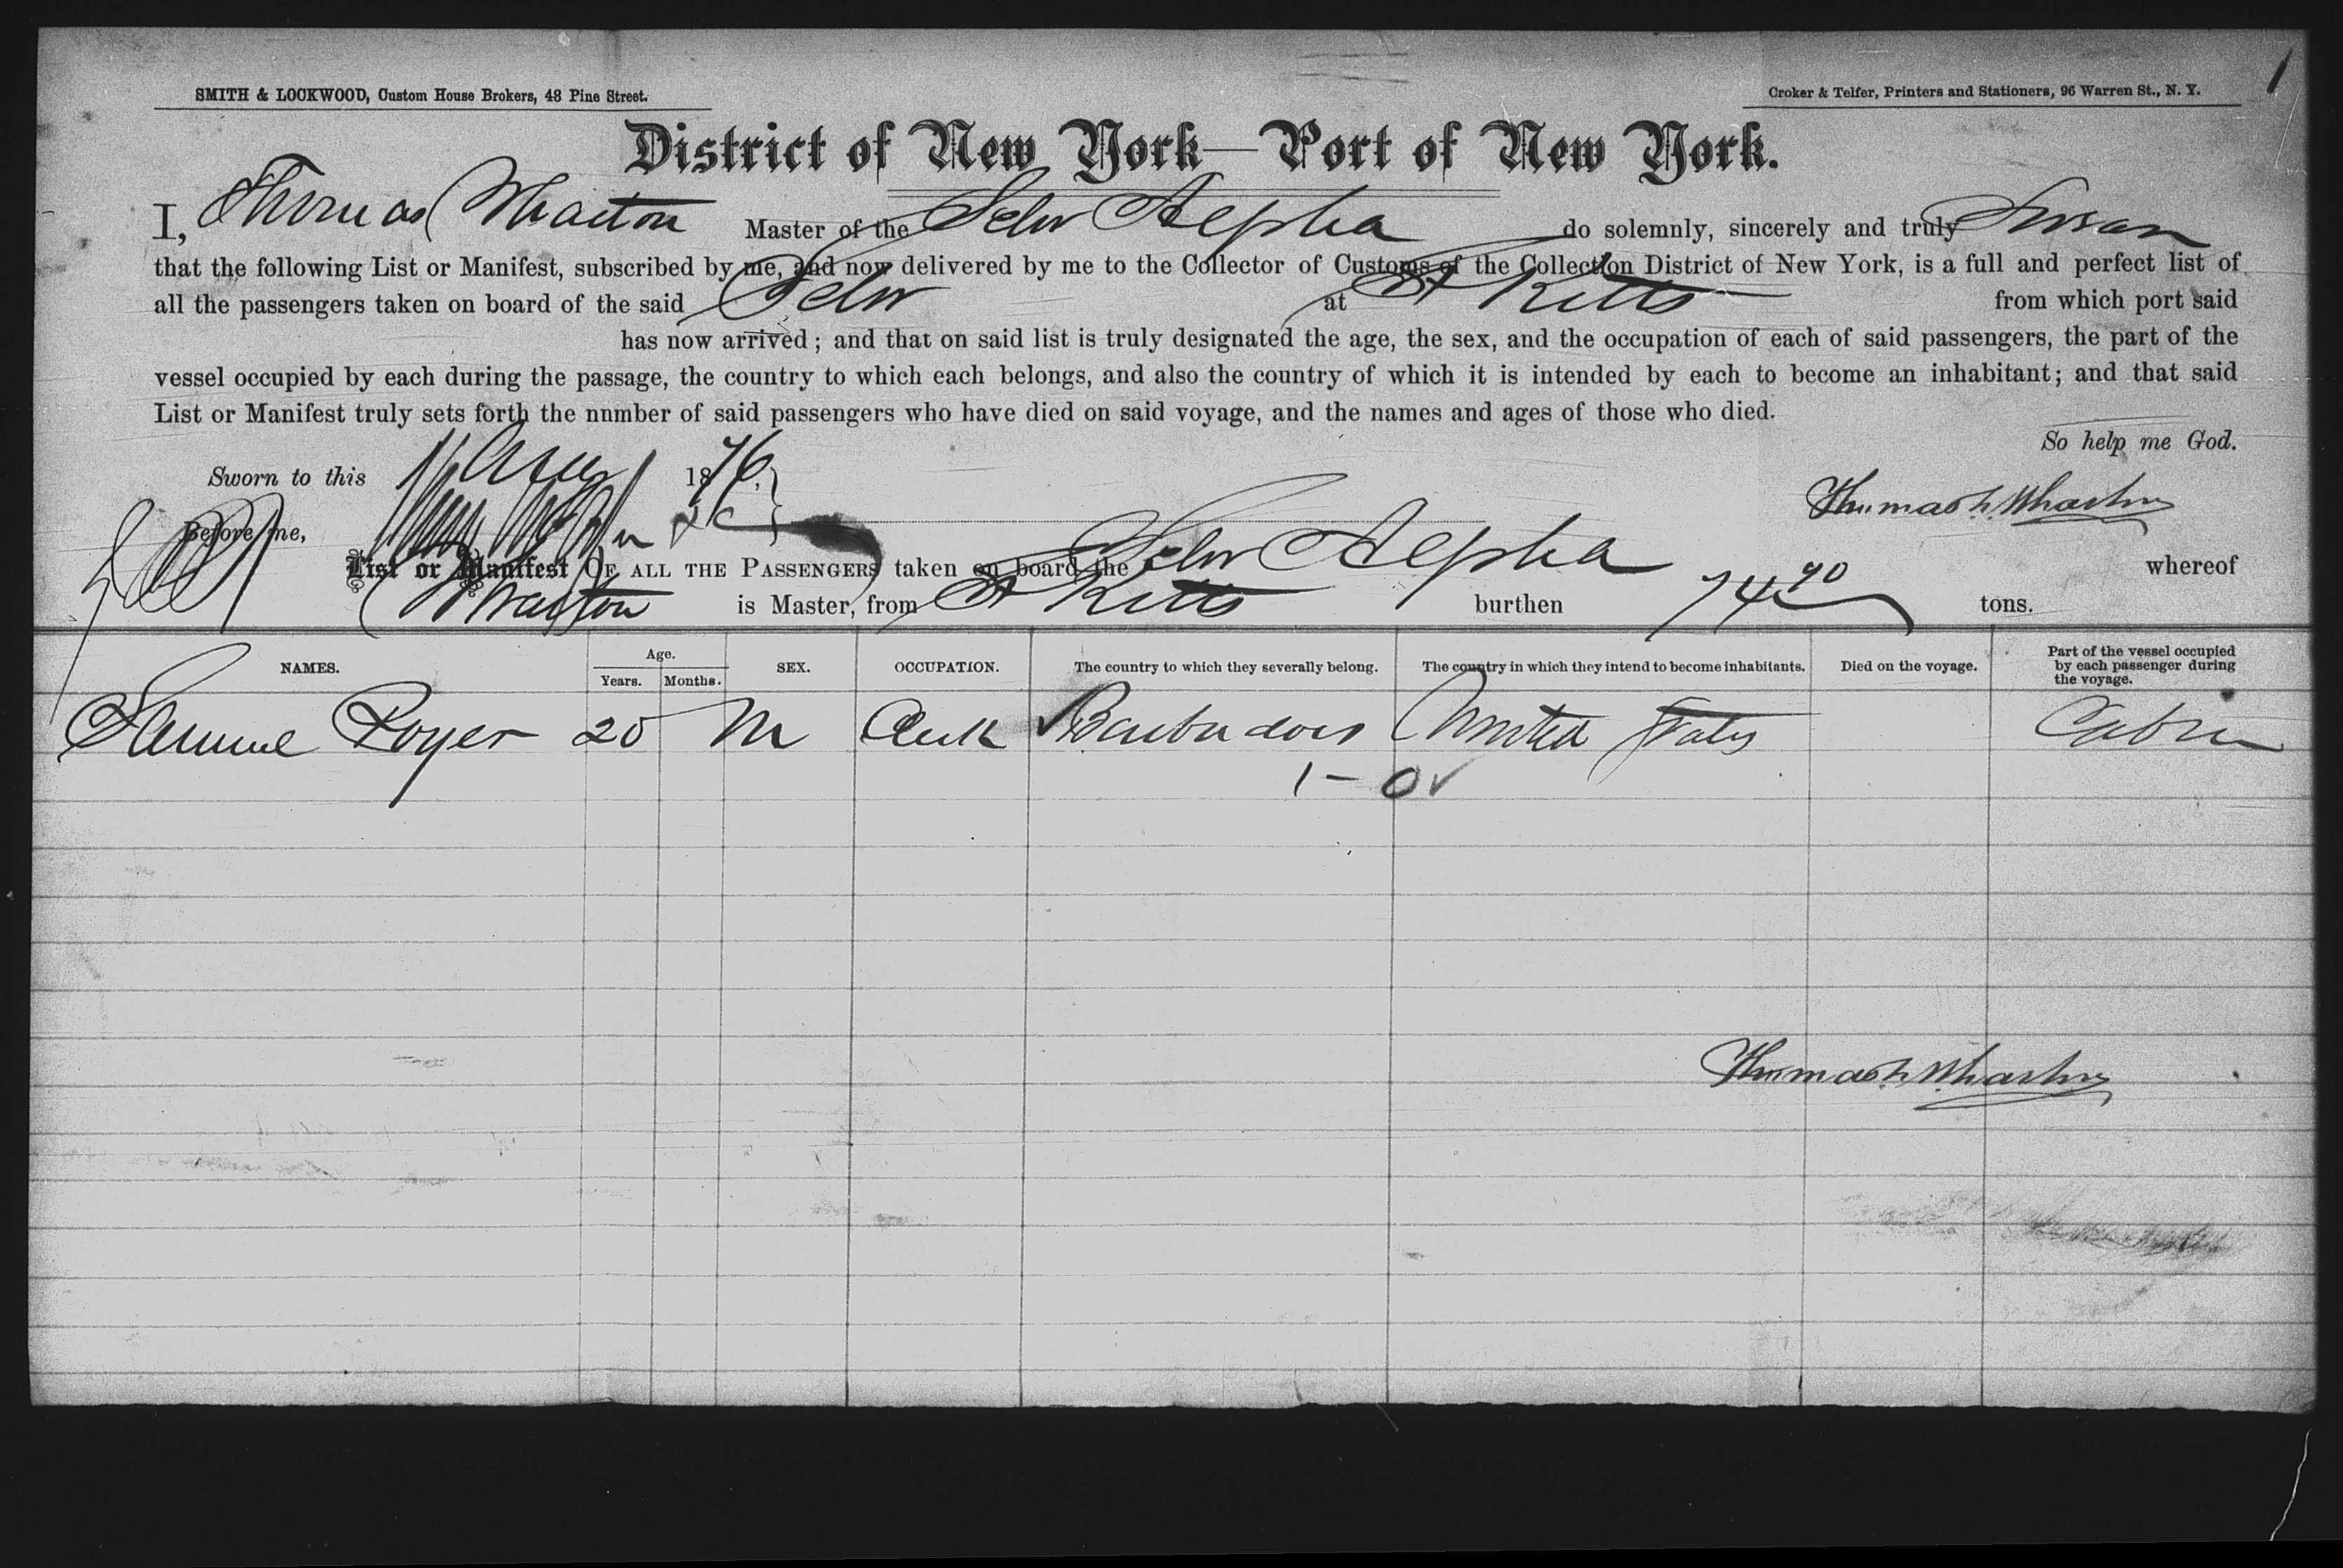 1
SMITH & LOCKWOOD, Custom House Brokers, 48 Pine Street.
Croker & Telfer, Printers and Stationers, 96 Warren St., N. Y.
District of New York—Port of New York.
I, Thomas Wharton Master of the Schr Alpha do solemnly, sincerely and truly Swear
that the following List or Manifest, subscribed by me, and now delivered by me to the Collector of Customs of the Collection District of New York, is a full and perfect list of
all the passengers taken on board of the said Schr at St Kitts from which port said
has now arrived; and that on said list is truly designated the age, the sex, and the occupation of each of said passengers, the part of the
vessel occupied by each during the passage, the country to which each belongs, and also the country of which it is intended by each to become an inhabitant; and that said
List or Manifest truly sets forth the nnmber of said passengers who have died on said voyage, and the names and ages of those who died.
So help me God.
Sworn to this 11 Aug 1876.
Thomas h. Wharton
Before me,
List or Manifest OF ALL THE PASSENGERS taken on board the Schr Alpha whereof
Wharton is Master, from St Kitts burthen 74 90 tons.
NAMES. Age. Years. Months. SEX. OCCUPATION. The country to which they severally belong. The country in which they intend to become inhabitants. Died on the voyage. Part of the vessel occupied by each passenger during the voyage.
Samuel Royer 20 M Clerk Barbadoes United States Cabin
1 - 0 ✓
Thomas h. Wharton